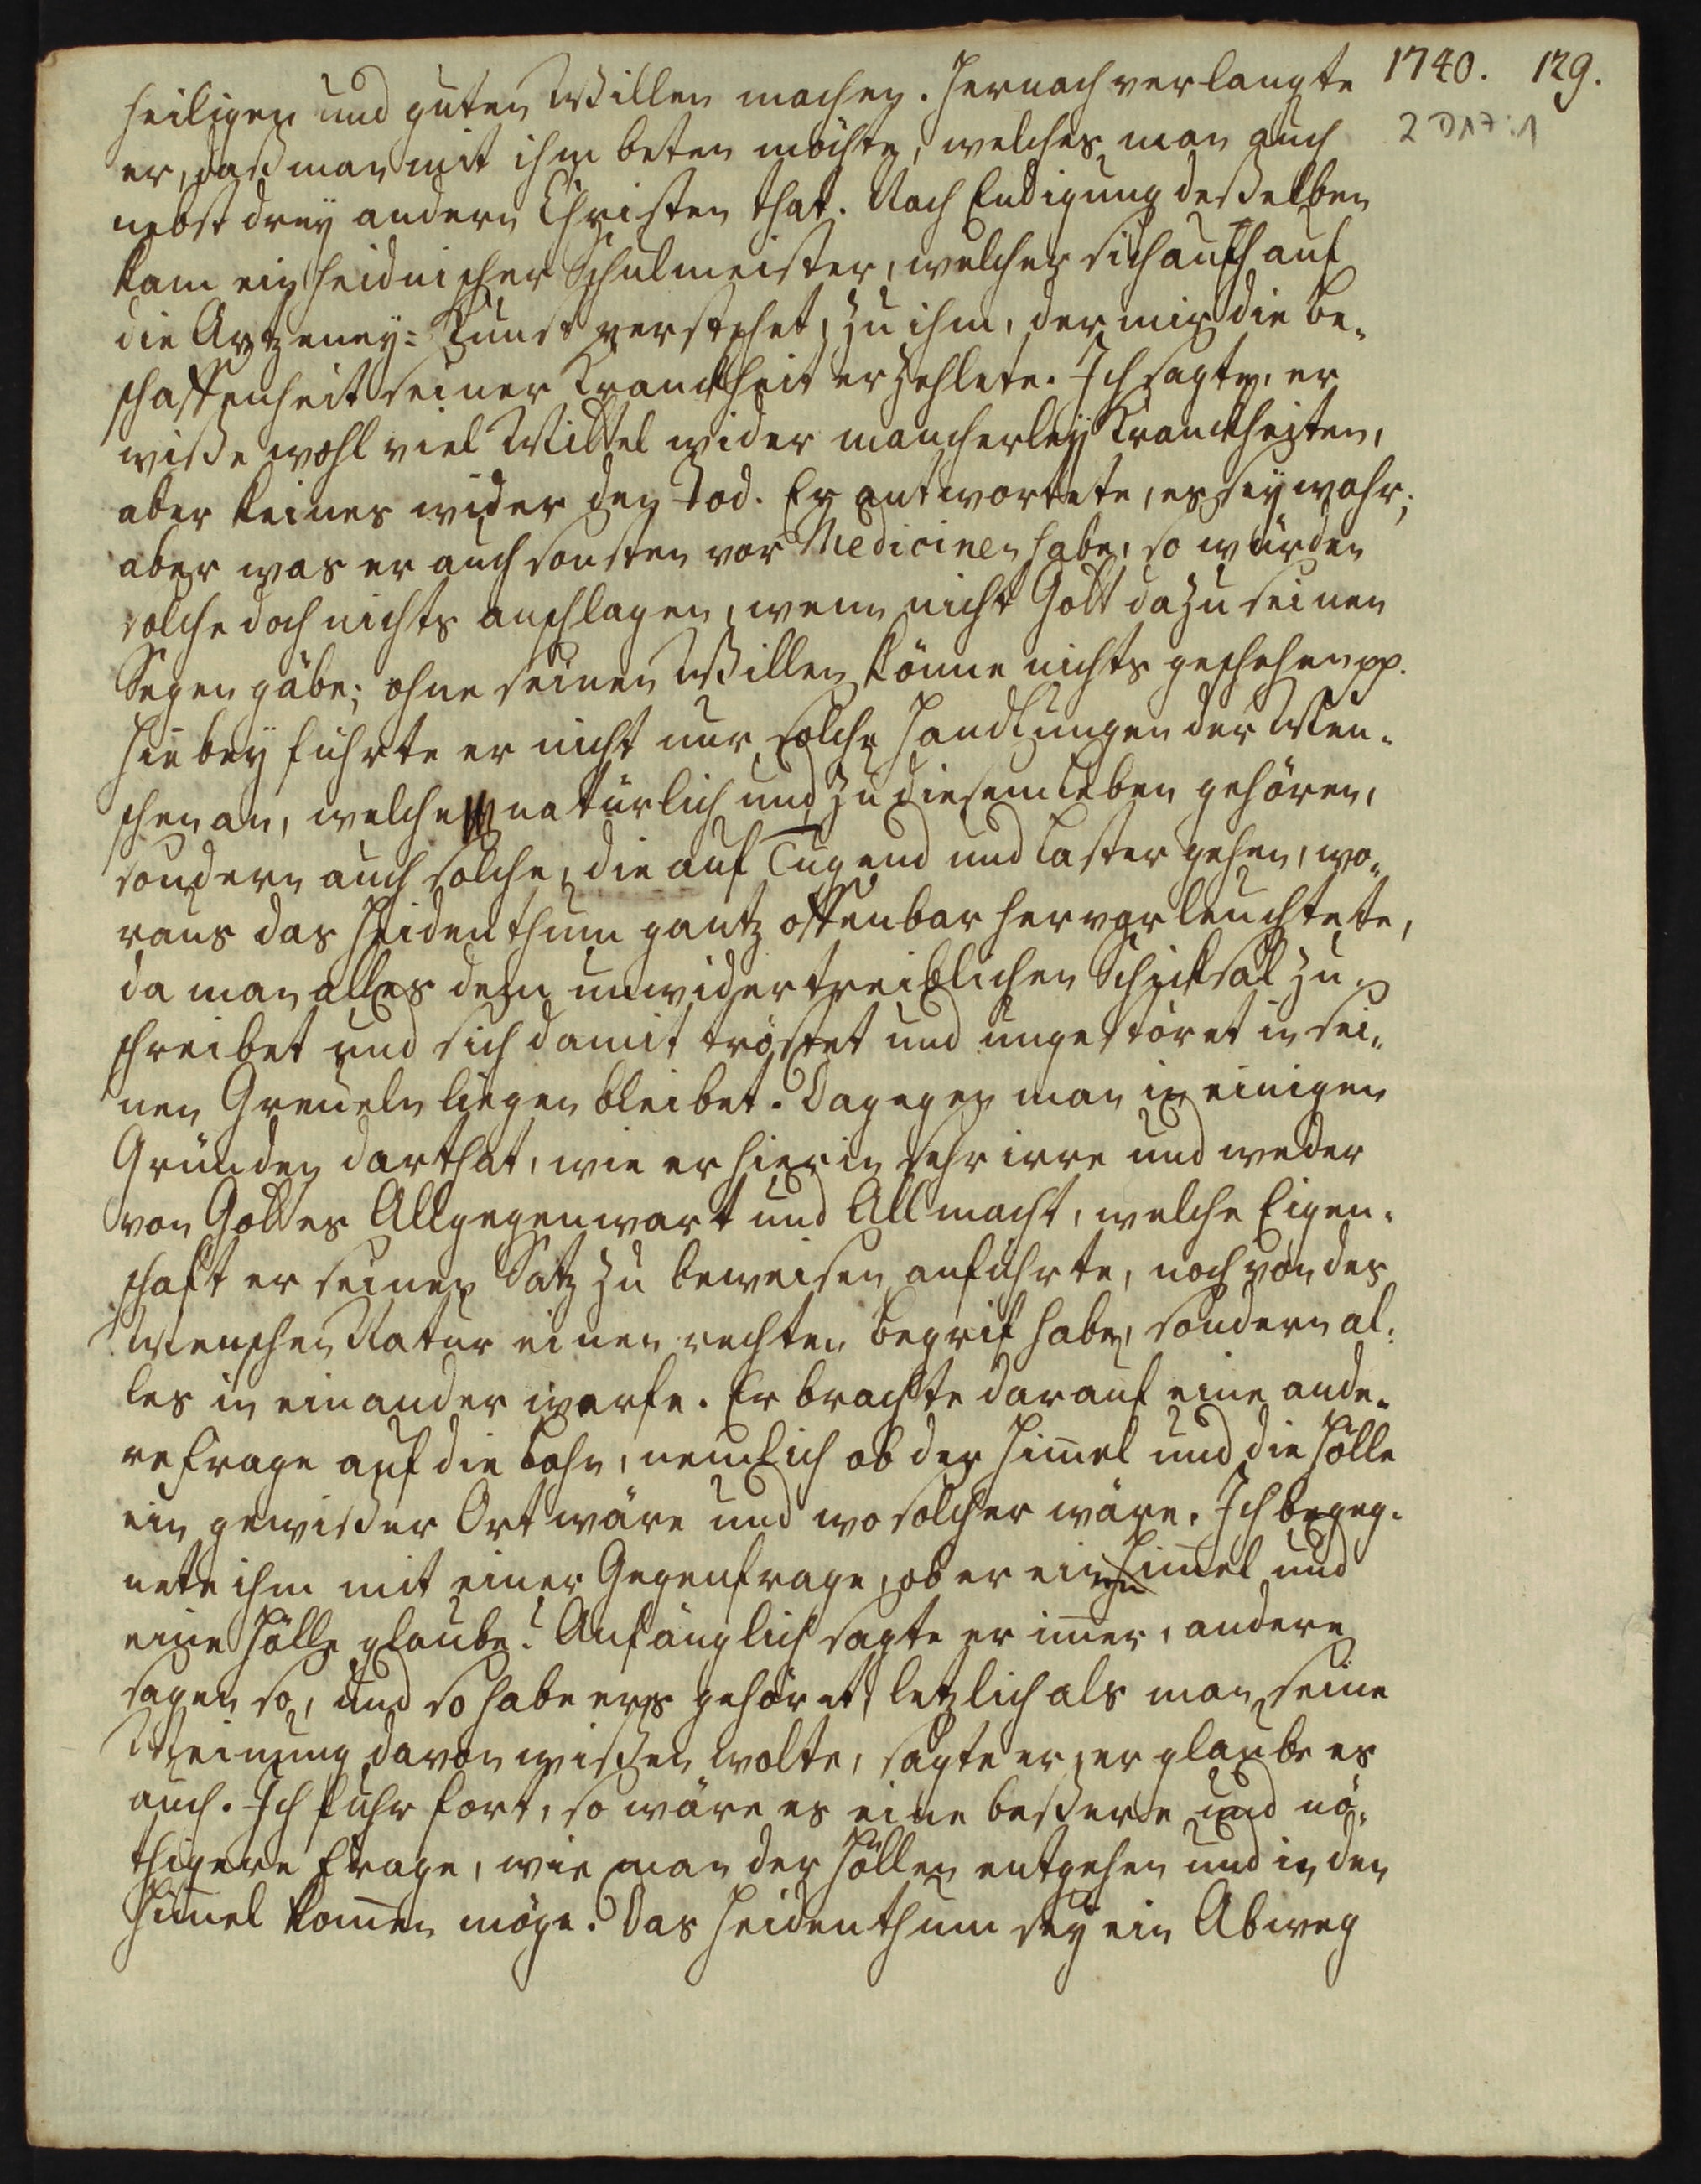 1740. 129.
2 D17:1
heiligen und guten Willen machen. Hernach verlangte
er, daß man mit ihm beten möchte, welches man auch
nebst drey andern Christen that. Nach Endigung deßelben
kam ein heidnischer Schulmeister, welcher sich auch auf
die Artzeney-Kunst verstehet, zu ihm, der mir die Be-
schaffenheit seiner Kranckheit erzehlete. Ich sagte, er
wiße wohl viel Mittel wider mancherley Kranckheiten,
aber keines wider den Tod. Er antwortete, es sey wahr;
aber was er auch sonsten vor Medicinen habe, so würden
solche doch nichts anschlagen, wenn nicht Gott dazu seinen
Segen gäbe; ohne seinen Willen könne nichts geschehen pp.
Hiebey führte er nicht nur solche Handlungen der Men-
schen an, welche natürlich und zu diesem Leben gehören,
sondern auch solche, die auf Tugend und Laster gehen, wo-
raus das Heidenthum gantz offenbar hervorleuchtete,
da man alles dem unwidertreiblichen Schicksal zu-
schreibet und sich damit tröstet und ungestöret in sei-
nen Greueln liegen bleibet. Dagegen man in einigen
Gründen darthat, wie er hierin sehr irre und weder
von Gottes Allgegenwart und Allmacht, welche Eigen-
schaft er seinen Satz zu beweisen anführte, noch von des
Menschen Natur einen rechten Begrif habe, sondern al-
les in einander werfe. Er brachte darauf eine ande-
re Frage auf die Bahn, nemlich ob der Himel und die Hölle
ein gewißer Ort wäre und wo solcher wäre. Ich begeg-
nete ihm mit einer Gegenfrage, ob er einen Himel und
eine Hölle glaube? Anfänglich sagte er imer, andere
sagen so, und so habe ers gehöret, letzlich als man seine
Meinung davon wißen wolte, sagte er, er glaube es
auch. Ich fuhr fort, so wäre es eine beßere und nö-
thigere Frage, wie man der Höllen entgehen und in den
Himel komen möge. Das Heidenthum sey ein Abweg